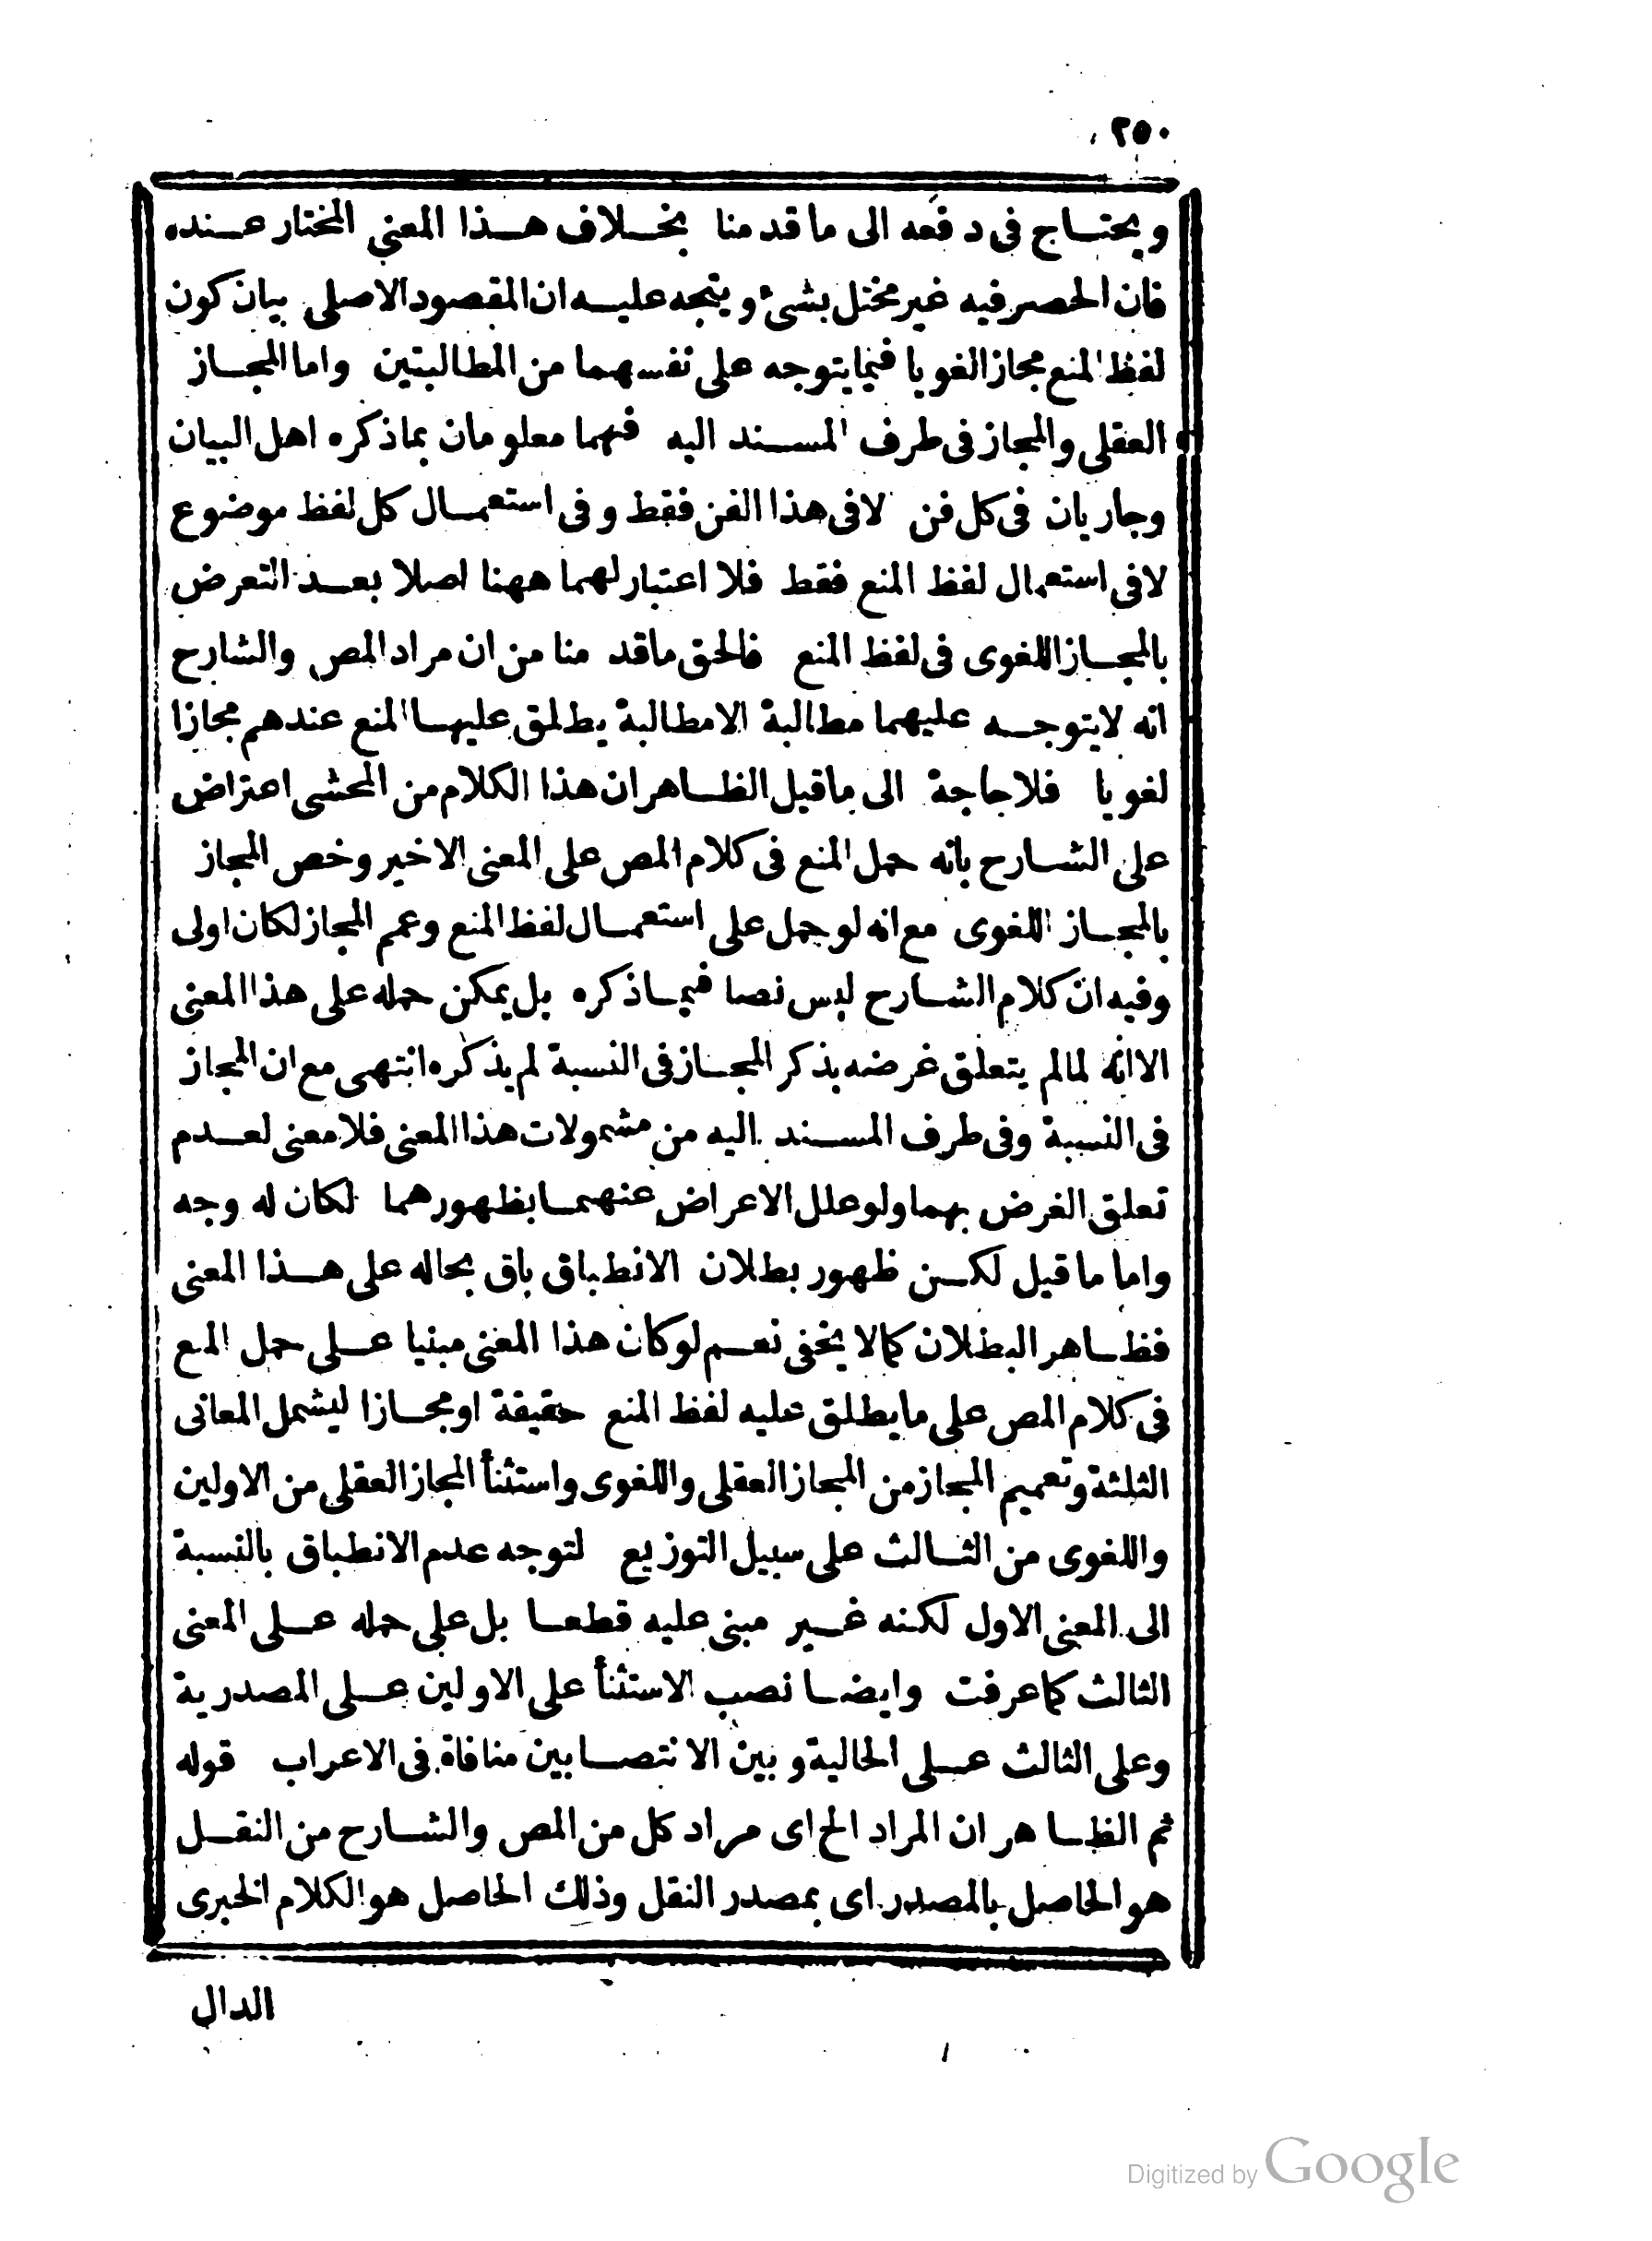 ٢٥٠
ويحتاج فى دفعه الى ما قدمنا بخلاف هذا المعنى المختار عنده
فان الحصر فيه غير مختل بشئ ويتجه عليه ان المقصود الاصلى بيان كون
لفظ المنع مجازا لغويا فيما يتوجه على نفسهما من المطالبتين واما المجاز
العقلى والمجاز فى طرف المسند اليه فهما معلومان بما ذكره اهل البيان
وجاريان فى كل فن لا فى هذا الفن فقط وفى استعمال كل لفظ موضوع
لا فى استعمال لفظ المنع فقط فلا اعتبار لهما ههنا اصلا بعد التعرض
بالمجاز اللغوى فى لفظ المنع فالحق ما قدمنا من ان مراد المص والشارح
انه لا يتوجه عليهما مطالبة الا مطالبة يطلق عليها المنع عندهم مجازا
لغويا فلا حاجة الى ما قيل الظاهر ان هذا الكلام من المحشى اعتراض
على الشارح بانه حمل المنع فى كلام المص على المعنى الاخير وخص المجاز
بالمجاز اللغوى مع انه لو حمل على استعمال لفظ المنع وعمم المجاز لكان اولى
وفيه ان كلام الشارح ليس نصا فيما ذكره بل يمكن حمله على هذا المعنى
الا انه لما لم يتعلق غرضه بذكر المجاز فى النسبة لم يذكره انتهى مع ان المجاز
فى النسبة وفى طرف المسند اليه من مشمولات هذا المعنى فلا معنى لعدم
تعلق الغرض بهما ولو علل الاعراض عنهما بظهورهما لكان له وجه
واما ما قيل لكن ظهور بطلان الانطباق باق بحاله على هذا المعنى
فظاهر البطلان كما لا يخفى نعم لو كان هذا المعنى مبنيا على حمل المنع
فى كلام المص على ما يطلق عليه لفظ المنع حقيقة او مجازا ليشمل المعانى
الثلثة وتعميم المجاز من المجاز العقلى واللغوى واستثنأ المجاز العقلى من الاولين
واللغوى من الثالث على سبيل التوزيع لتوجه عدم الانطباق بالنسبة
الى المعنى الاول لكنه غير مبنى عليه قطعا بل على حمله على المعنى
الثالث كما عرفت وايضا نصب الاستثنأ على الاولين على المصدرية
وعلى الثالث على الحالية وبين الانتصابين منافاة فى الاعراب قوله
ثم الظاهر ان المراد الخ اى مراد كل من المص والشارح من النقل
هو الحاصل بالمصدر اى بمصدر النقل وذلك الحاصل هو الكلام الخبرى
الدال
Digitized by Google